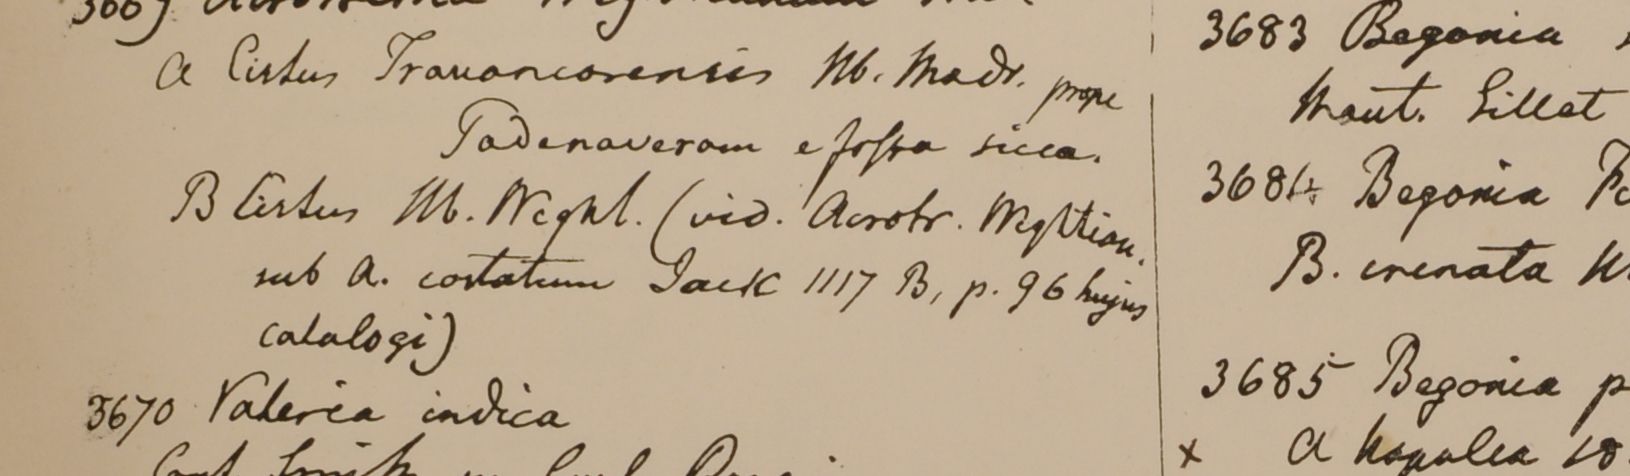 3669
A Cistus Travancorensis Hb. Madr. prope
Tadenaveram e fossa sicca.
B Cistus Hb. Wight. (vid. Acrotr. Wightian.
sub A. costatum Jack 1117 B, p. 96 hujus
catalogi)
3670 Vateria indica
3683 Begonia
Maut. Sillet
3684 Begonia
B. crenata
3685 Begonia p
x A Napalea